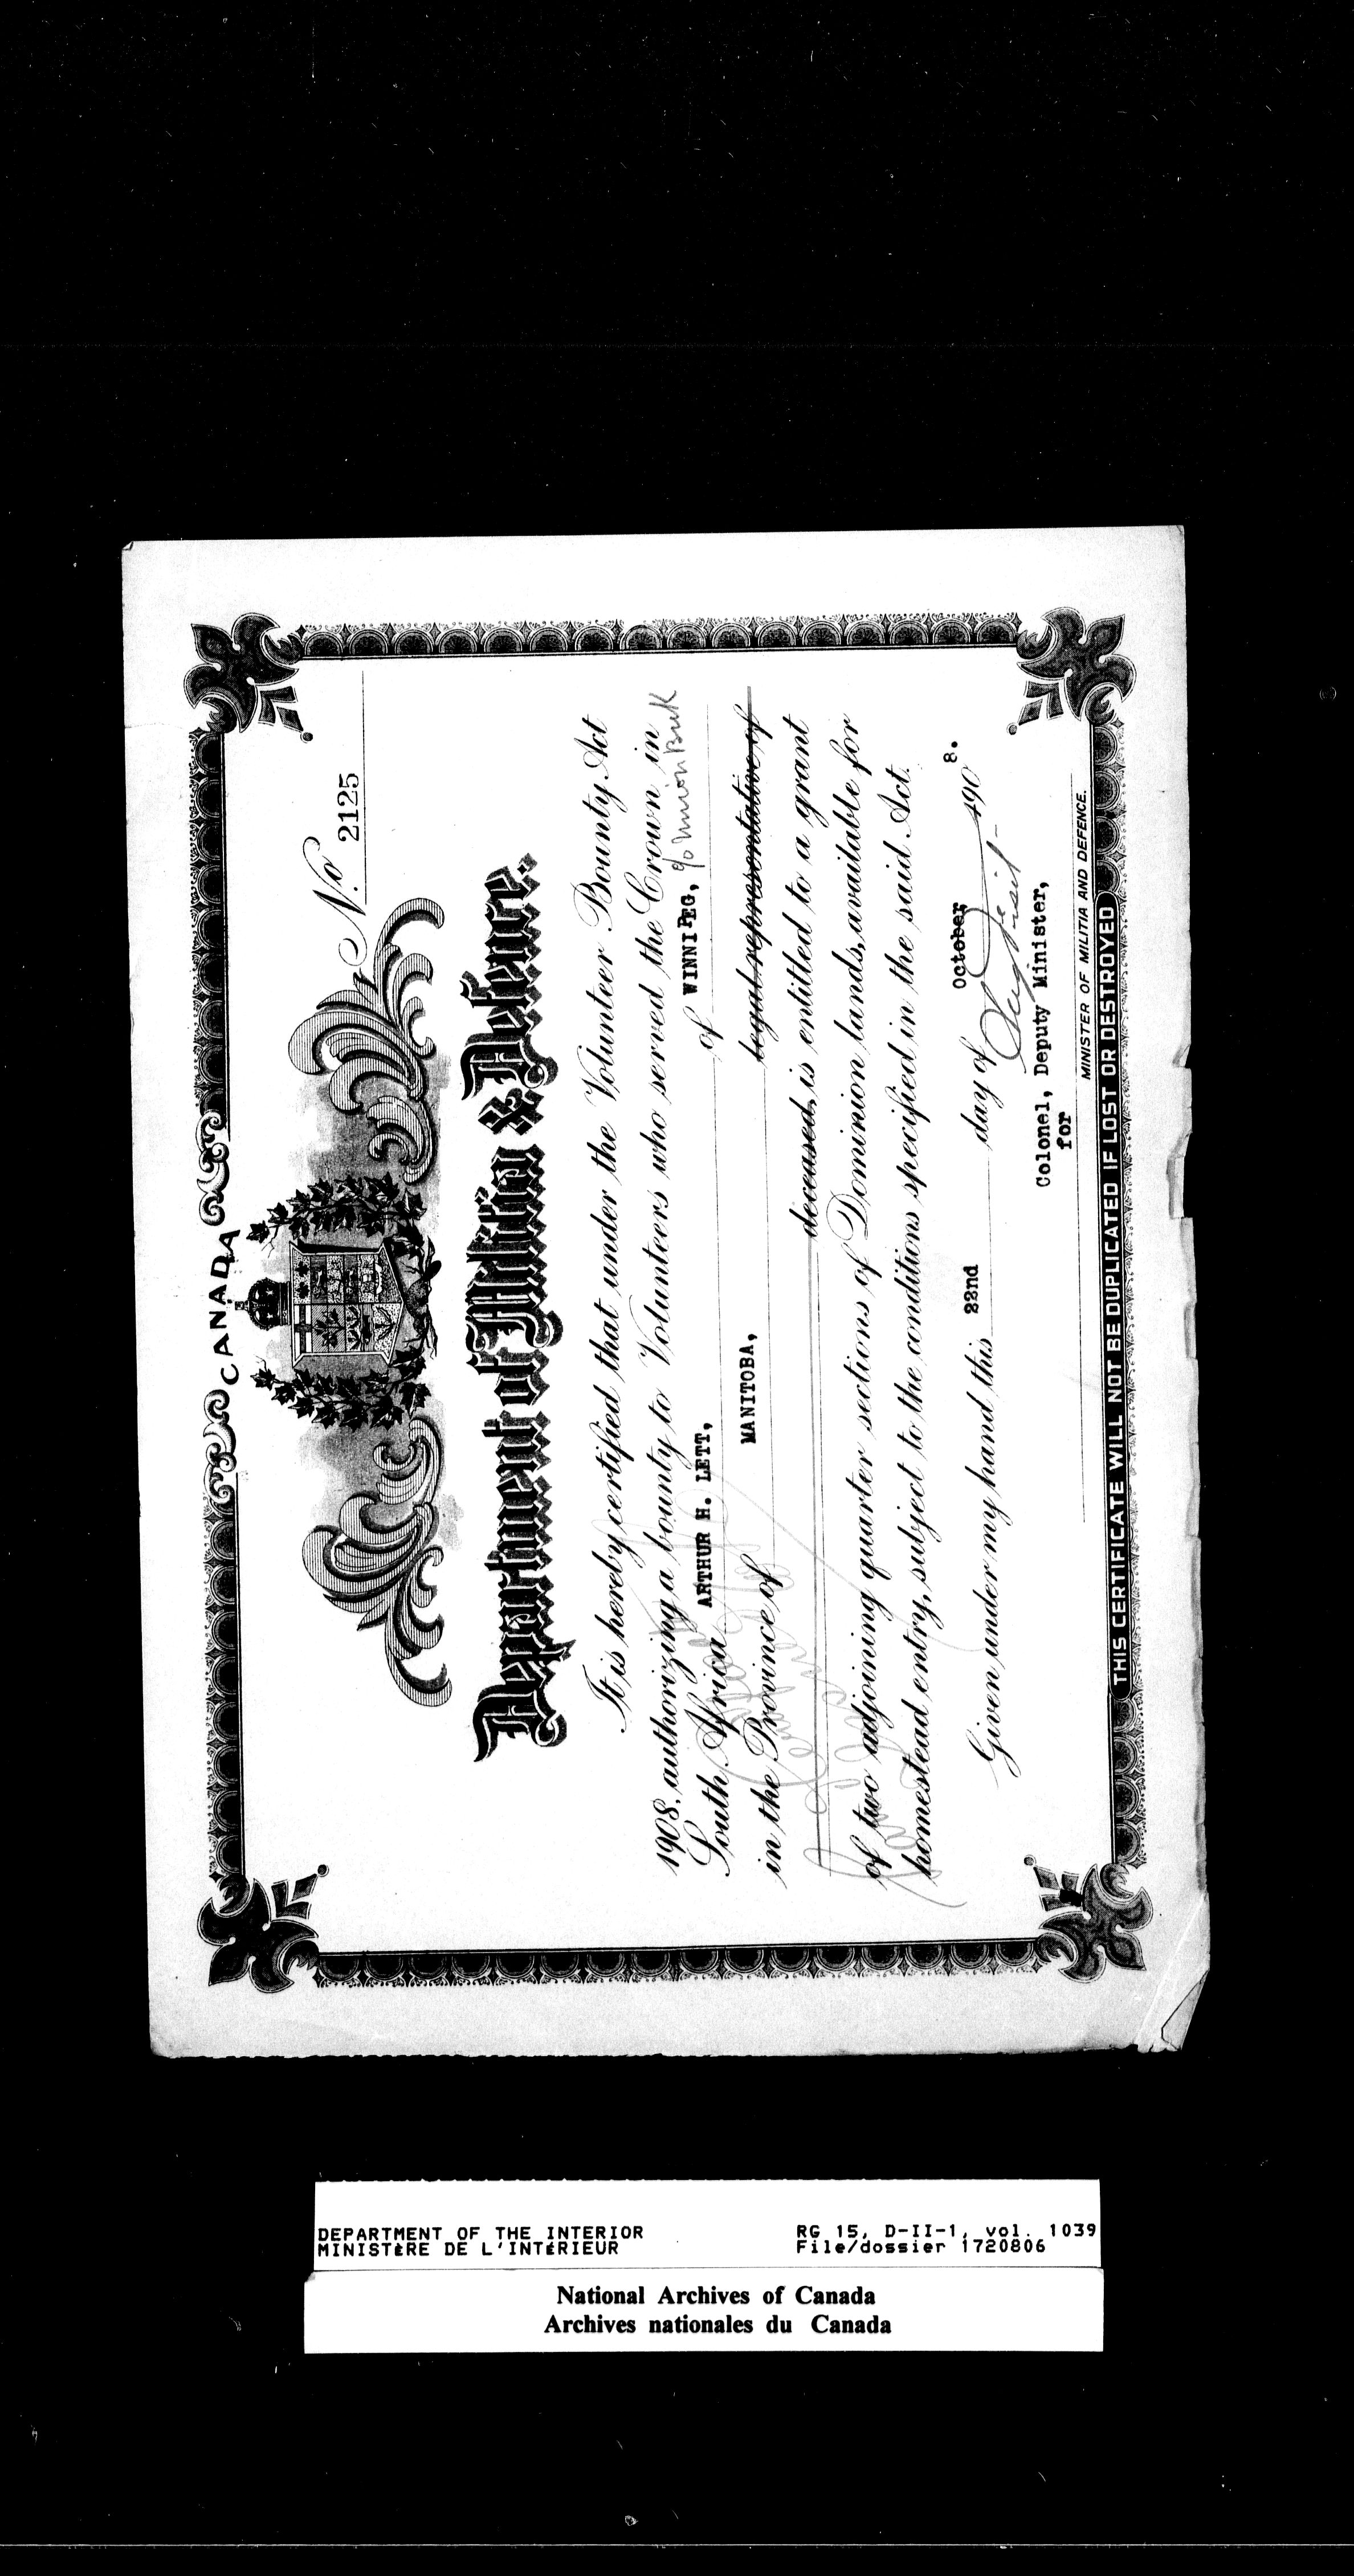 CANADA
No. 2125
Department of Militia & Defence.
It is hereby certified that under the Volunteer Bounty Act
1908, authorizing a bounty to Volunteers who served the Crown in
South Africa ARTHUR H. LETT, of WINNIPEG, c/o Union Bank
in the Province of MANITOBA, legal representative of
deceased, is entitled to a grant
of two adjoining quarter sections of Dominion lands, available for
homestead entry, subject to the conditions specified in the said Act.
Given under my hand this 22nd day of October 1908.
Colonel, Deputy Minister,
for
MINISTER OF MILITIA AND DEFENCE.
THIS CERTIFICATE WILL NOT BE DUPLICATED IF LOST OR DESTROYED
DEPARTMENT OF THE INTERIOR RG 15, D-II-1, vol. 1039
MINISTÈRE DE L'INTÉRIEUR File/dossier 1720806
National Archives of Canada
Archives nationales du Canada